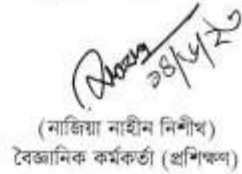 (নাজিয়া নাহীন নিশীথ)
বৈজ্ঞানিক কর্মকর্তা (প্রশিক্ষণ)